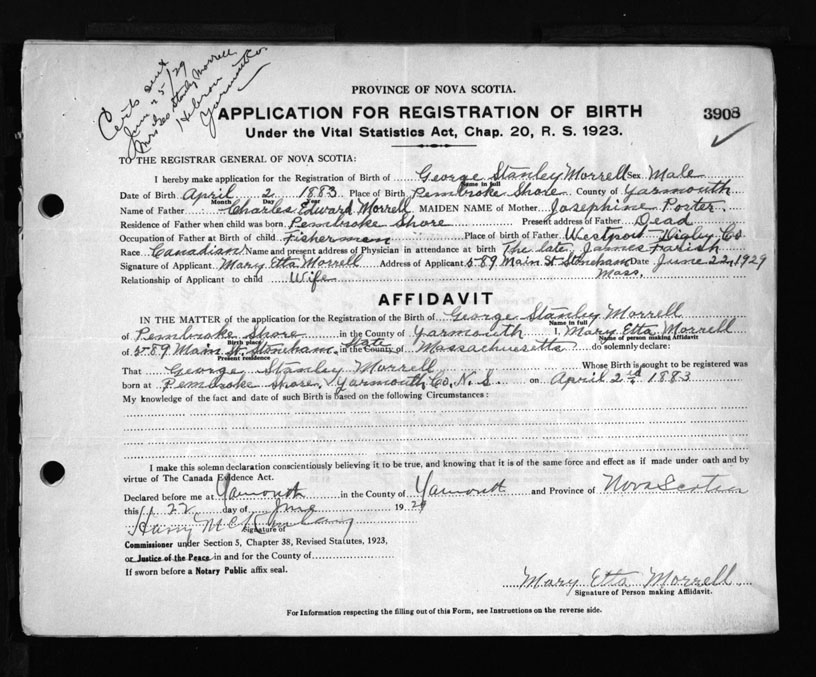 Certs sent
June 25/29
Mrs Geo Stanly Morrell
Hebron
Yarmouth Co
PROVINCE OF NOVA SCOTIA.
APPLICATION FOR REGISTRATION OF BIRTH
3908
Under the Vital Statistics Act, Chap. 20, R. S. 1923.
TO THE REGISTRAR GENERAL OF NOVA SCOTIA:
I hereby make application for the Registration of Birth of George Stanley Morrell Sex Male
Name in full
Date of Birth April 2 1883 Place of Birth Pembroke Shore County of Yarmouth
Month Day Year
Name of Father Charles Edward Morrell MAIDEN NAME of Mother Josephine Porter
Residence of Father when child was born Pembroke Shore Present address of Father Dead
Occupation of Father at Birth of child Fishermen Place of birth of Father Westport Digby Co
Race Canadian Name and present address of Physician in attendance at birth The late James Farish
Signature of Applicant Mary Etta Morrell Address of Applicant 589 Main St Stoneham Date June 22, 1929
Mass.
Relationship of Applicant to child Wife
AFFIDAVIT
IN THE MATTER of the application for the Registration of the Birth of George Stanley Morrell
Name in full
of Pembroke Shore in the County of Yarmouth I, Mary Etta Morrell
Birth place Name of person making Affidavit
of 589 Main St. Stoneham State in the County of Massachusetts do solemnly declare:
Present residence
That George Stanley Morrell Whose Birth is sought to be registered was
born at Pembroke Shore, Yarmouth, Co, N. S. on April 2nd 1883
My knowledge of the fact and date of such Birth is based on the following Circumstances:
I make this solemn declaration conscientiously believing it to be true, and knowing that it is of the same force and effect as if made under oath and by
virtue of The Canada Evidence Act.
Declared before me at Yarmouth in the County of Yarmouth and Province of Nova Scotia
this 22 day of June 1929
Signature of
Commissioner under Section 5, Chapter 38, Revised Statutes, 1923,
or Justice of the Peace in and for the County of
If sworn before a Notary Public affix seal.
Mary Etta Morrell
Signature of Person making Affidavit.
For Information respecting the filling out of this Form, see Instructions on the reverse side.